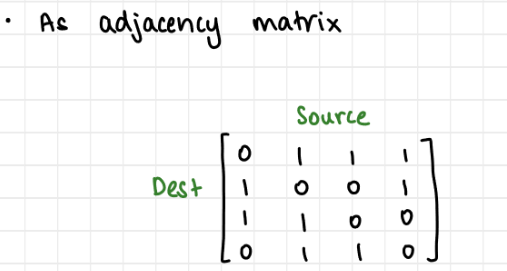 · As adjacency matrix
Source
0 1 1 1
Dest 1 0 0 1
1 1 0 0
0 1 1 0